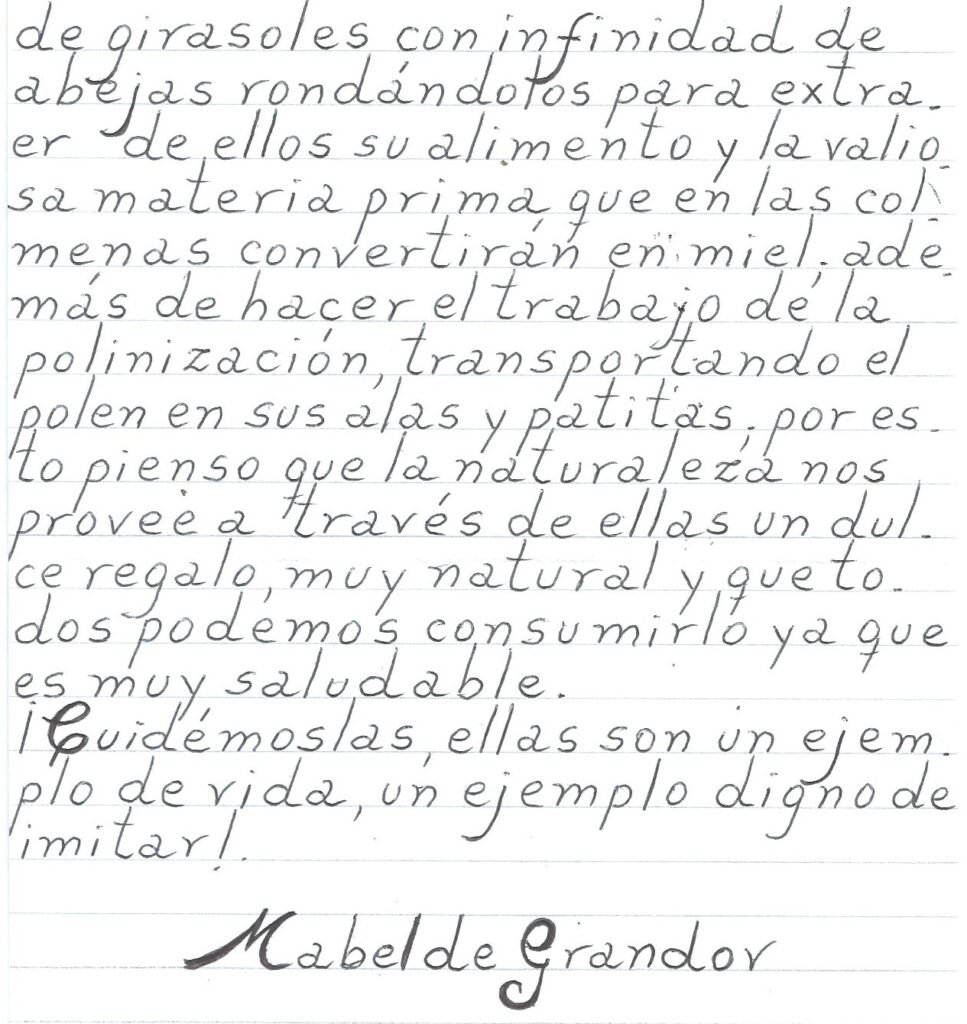 de girasoles con infinidad de
abejas rondándolos para extra-
er de ellos su alimento y la valio-
sa materia prima que en las col-
menas convertirán en miel; ade-
más de hacer el trabajo de la
polinización, transportando el
polen en sus alas y patitas; por es-
to pienso que la naturaleza nos
provee a través de ellas un dul-
ce regalo, muy natural y que to-
dos podemos consumirlo ya que
es muy saludable.
¡Cuidémoslas, ellas son un ejem-
plo de vida, un ejemplo digno de
imitar!.
Mabel de Grandov